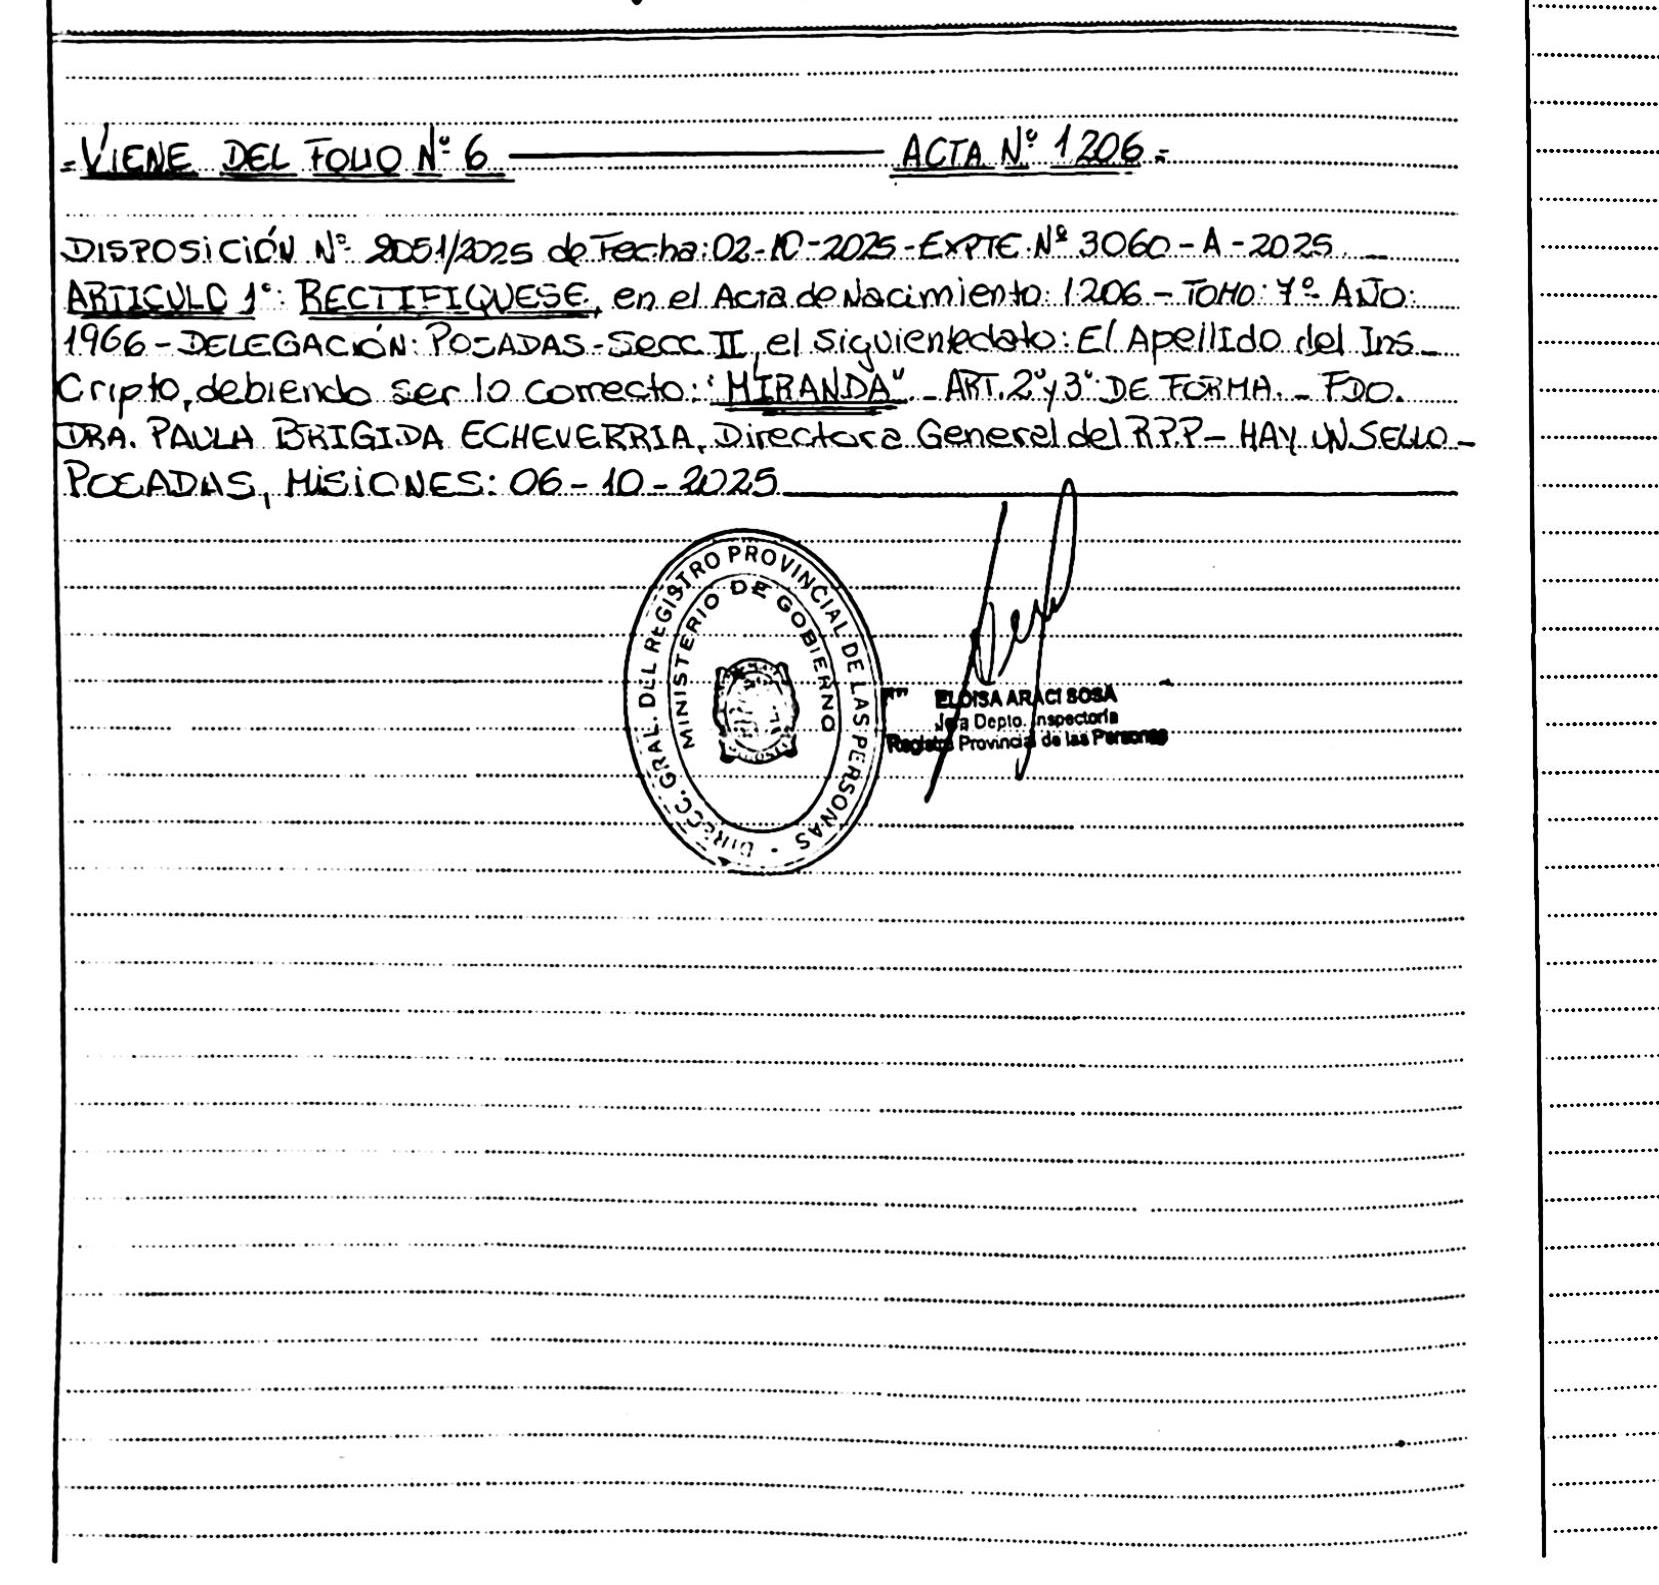 = VIENE DEL FOLIO Nº 6 ACTA Nº 1206.=
DISPOSICIÓN Nº 2051/2025 de Fecha: 02-10-2025- EXPTE. Nº 3060-A-2025
ARTICULO 1º: RECTIFIQUESE, en el Acta de Nacimiento: 1206 - TOMO: 7º AÑO:
1966 - DELEGACIÓN: POSADAS - Secc II, el siguiente dato: El Apellido del Ins_
cripto, debiendo ser lo correcto: "MIRANDA" _ ART. 2º y 3º DE FORMA. _ FDO.
DRA. PAULA BRIGIDA ECHEVERRIA, Directora General del R.P.P - HAY UN SELLO -
POSADAS, MISIONES: 06-10-2025
DIRECC. GRAL. DEL REGISTRO PROVINCIAL DE LAS PERSONAS •
MINISTERIO DE GOBIERNO
ELOISA ARACI SOSA
Jefa Depto. Inspectoría
Registro Provincial de las Personas